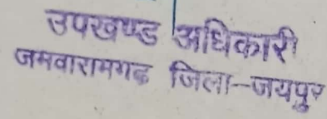 उपखण्ड अधिकारी
जमवारामगढ जिला-जयपुर